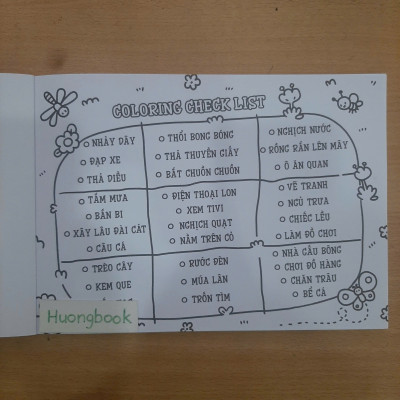 COLORING CHECK LIST
NHẢY DÂY
ĐẠP XE
THẢ DIỀU
THỔI BONG BÓNG
THẢ THUYỀN GIẤY
BẮT CHUỒN CHUỒN
NGHỊCH NƯỚC
RỒNG RẮN LÊN MÂY
Ô ĂN QUAN
TẮM MƯA
BẮN BI
XÂY LÂU ĐÀI CÁT
CÂU CÁ
ĐIỆN THOẠI LON
XEM TIVI
NGHỊCH QUẠT
NẰM TRÊN CỎ
VẼ TRANH
NGỦ TRƯA
CHIẾC LỀU
LÀM ĐỒ CHƠI
TRÈO CÂY
KEM QUE
RƯỚC ĐÈN
MÚA LÂN
TRỐN TÌM
NHÀ CẦU BÓNG
CHƠI ĐỒ HÀNG
CHĂN TRÂU
BỂ CÁ
Huongbook